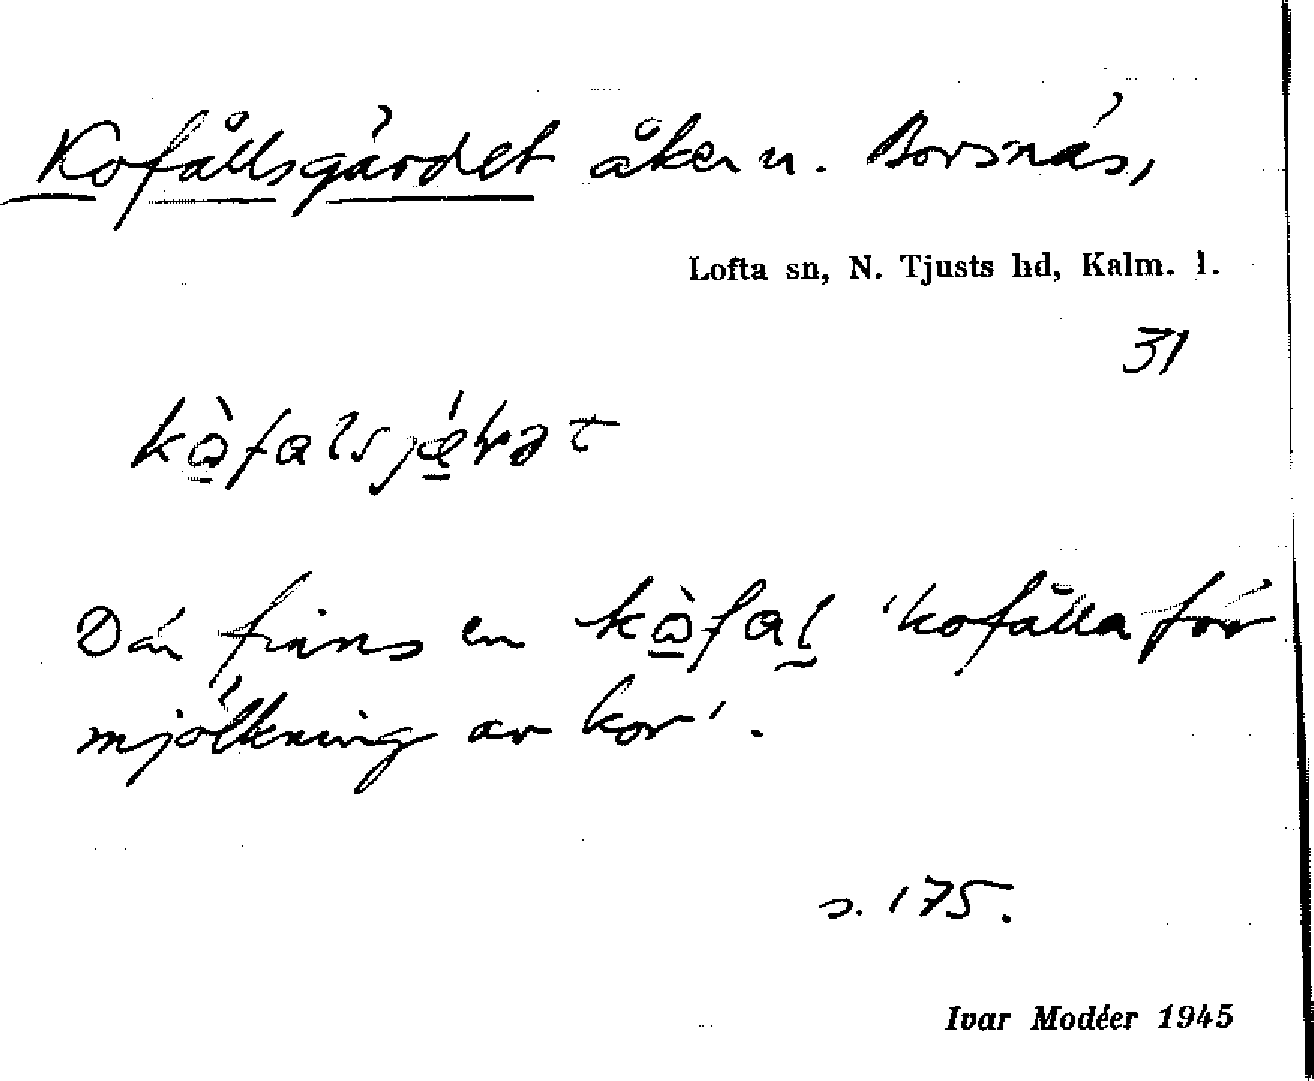 Kofållsgärdet åker u. Borsnäs,
Lofta sn, N. Tjusts hd, Kalm. l.
31
Där finns en kòfaḷ 'kofålla för
mjölkning av kor'.
s. 175.
Ivar Modéer 1945